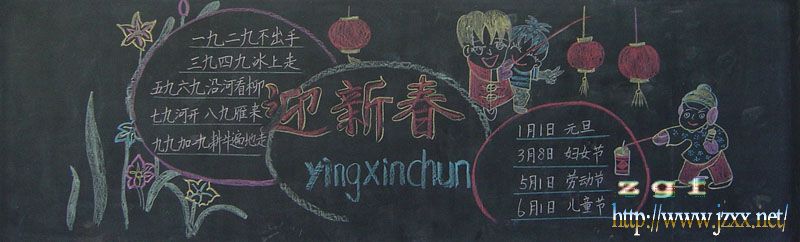 一九二九不出手
三九四九冰上走
五九六九沿河看柳
七九河开八九雁来
九九加一九耕牛遍地走
迎新春
yingxinchun
1月1日 元旦
3月8日 妇女节
5月1日 劳动节
6月1日 儿童节
zgf
http://www.jzxx.net/